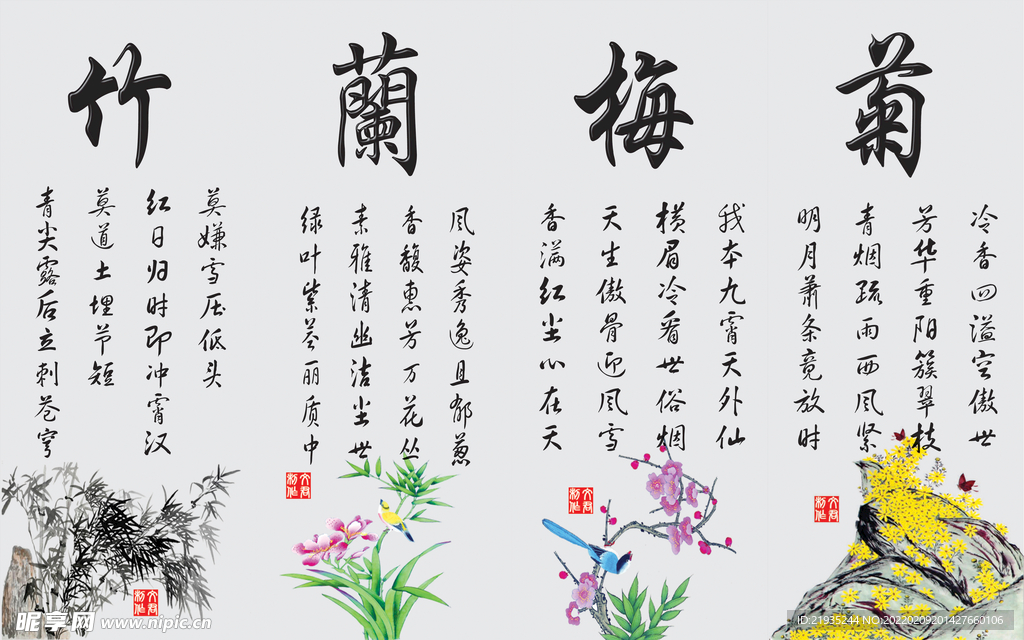 菊
冷香四溢空傲世
芳华重阳簇翠枝
青烟疏雨西风紧
明月萧条竟放时
文君
制作
梅
我本九霄天外仙
横眉冷看世俗烟
天生傲骨迎风雪
香满红尘心在天
文君
制作
蘭
风姿秀逸且郁葱
香馥惠芳万花丛
素雅清幽洁尘世
绿叶紫茎丽质中
文君
制作
竹
莫嫌雪压低头
红日归时即冲霄汉
莫道土埋节短
青尖露后立刺苍穹
文君
制作
昵享网 www.nipic.cn
ID:21935244 NO:20220209201427660106